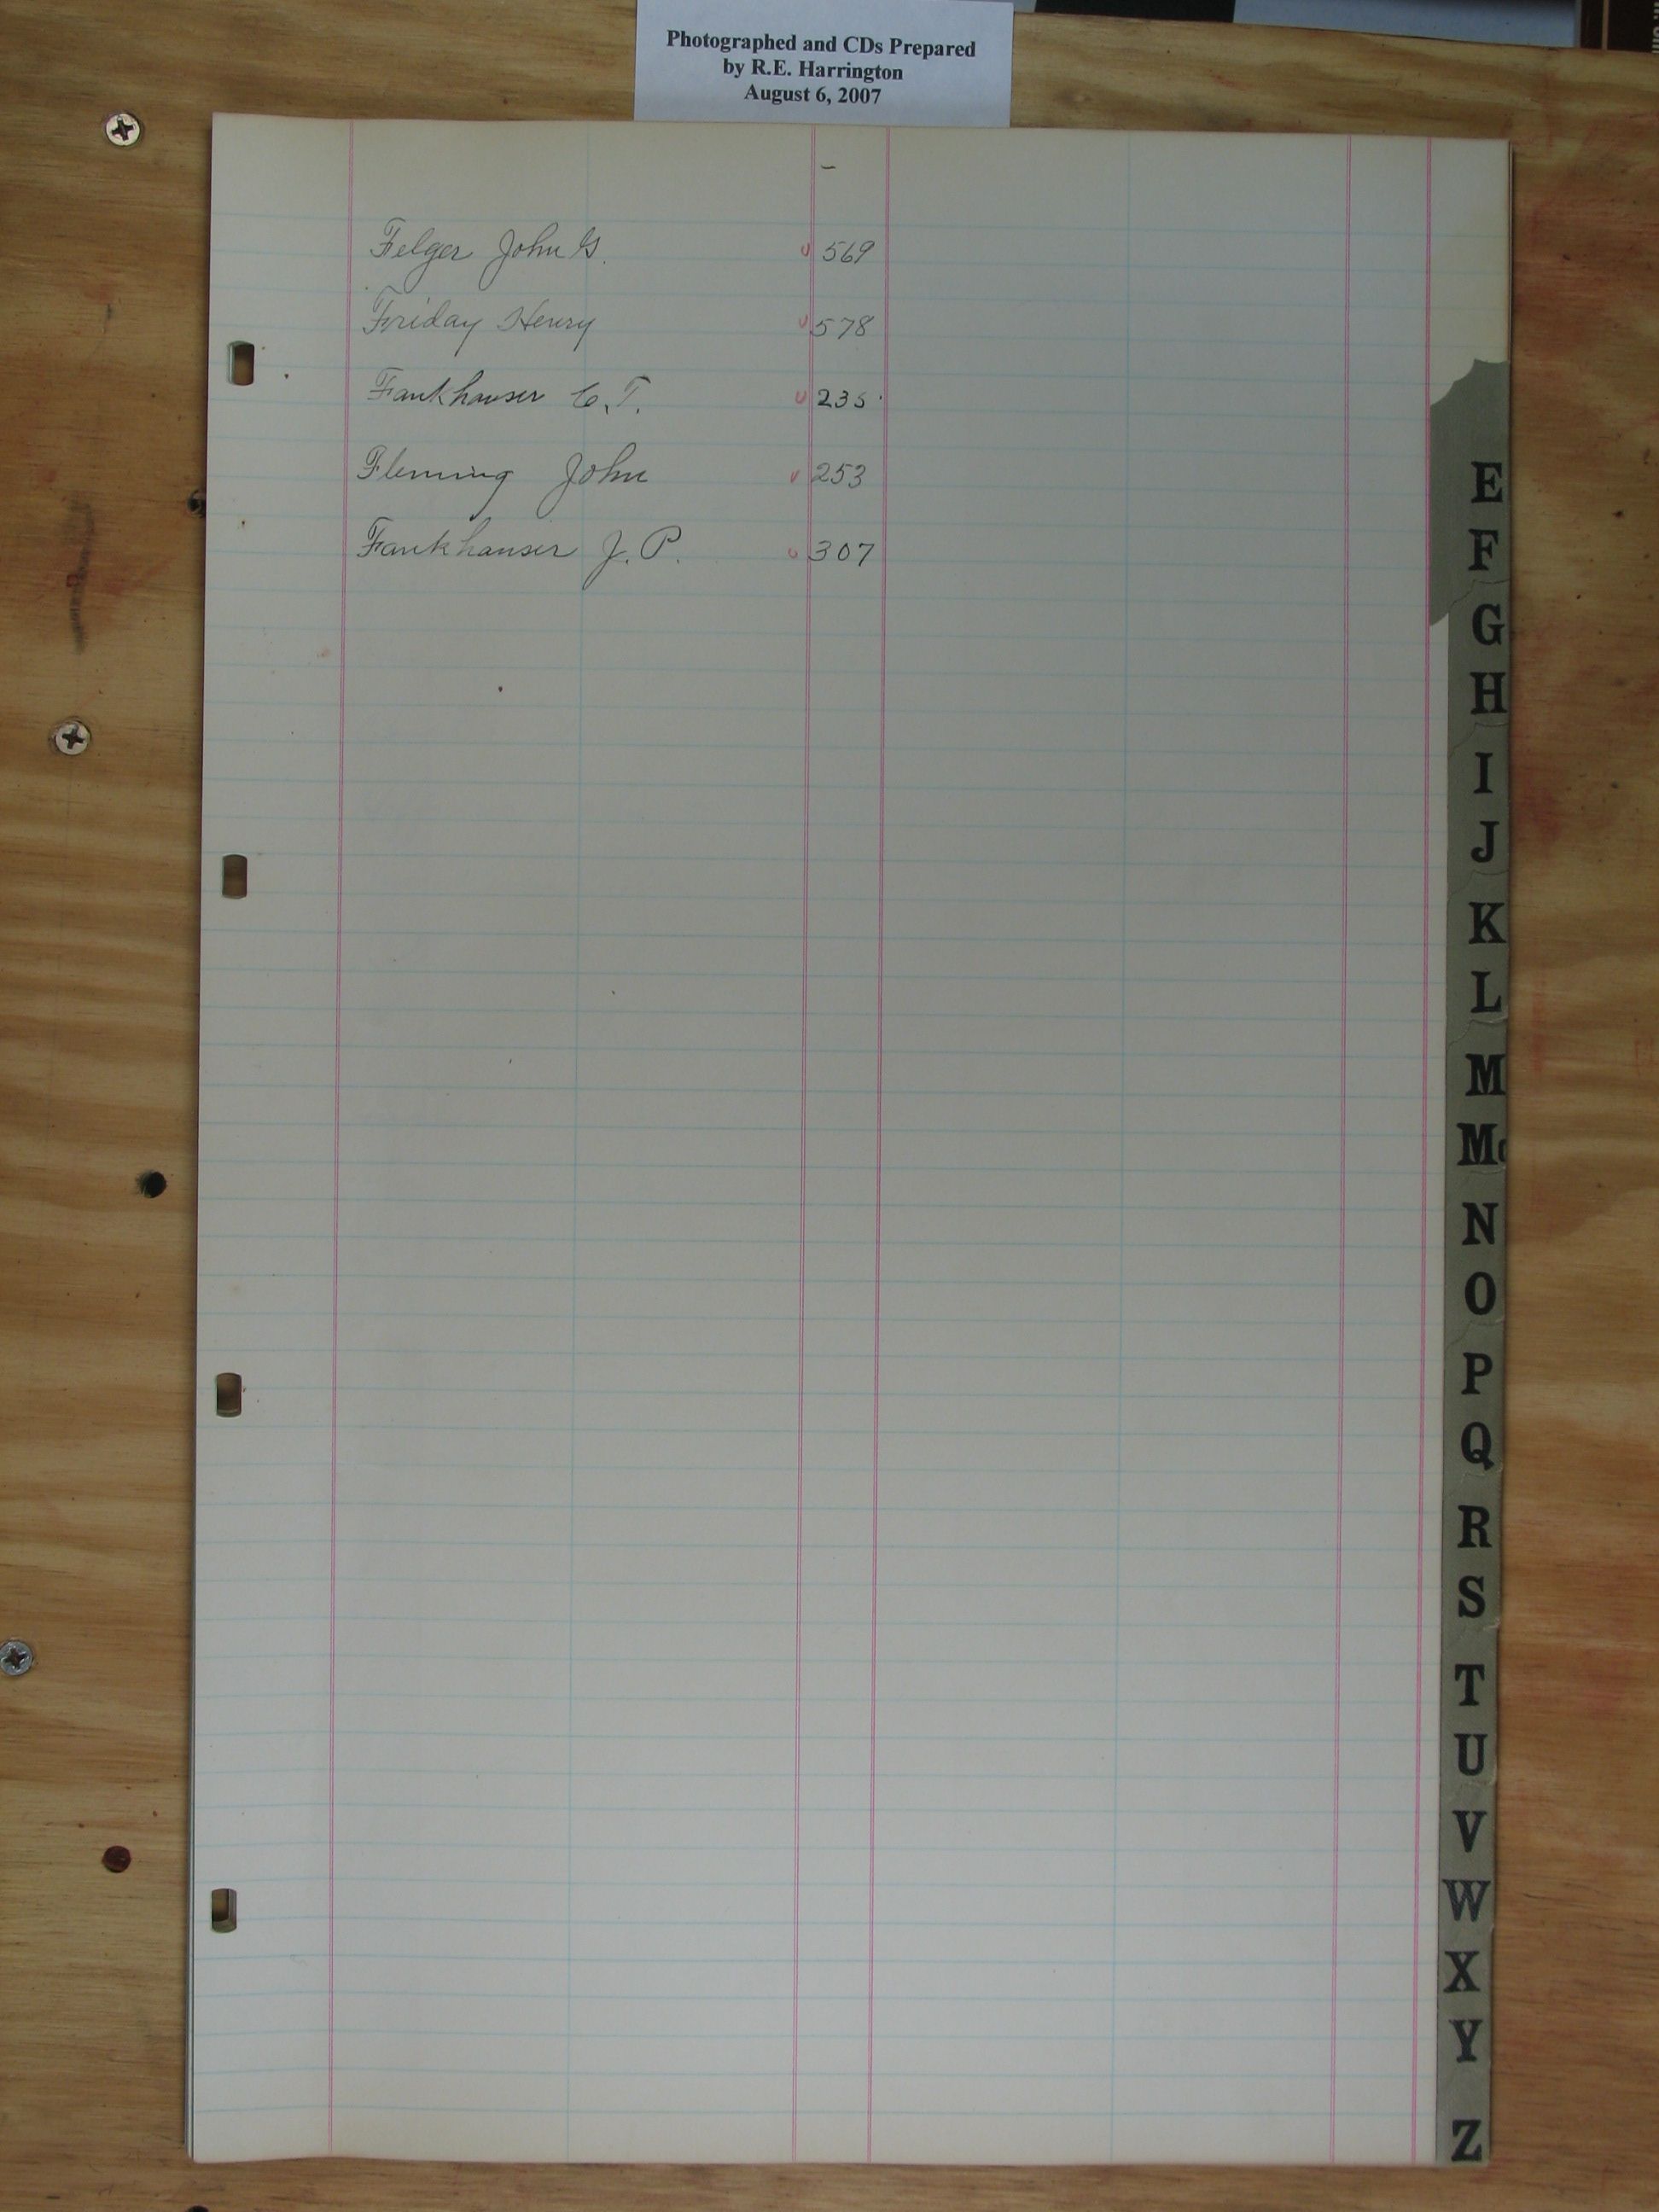 Photographed and CDs Prepared
by R.E. Harrington
August 6, 2007
Felger John G. 569
Friday Henry 578
Fankhauser C. T. 235
Fleming John 253
Fankhauser J. P. 307
E
F
G
H
I
J
K
L
M
Mc
N
O
P
Q
R
S
T
U
V
W
X
Y
Z